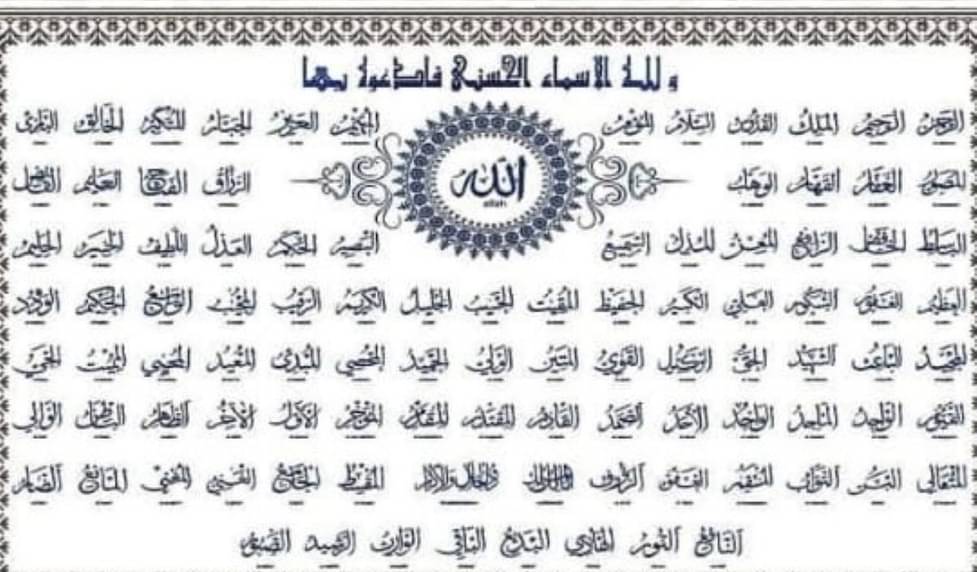 و لله الاسماء الحسنى فادعوه بها
الرحمن الرحيم الملك القدوس السلام المؤمن المهيمن العزيز الجبار المتكبر الخالق البارئ
الله
allah
المصور الغفار القهار الوهاب الرزاق الفتاح العليم القابض
الباسط الخافض الرافع المعز المذل السميع البصير الحكم العدل اللطيف الخبير الحليم
العظيم الغفور الشكور العلي الكبير الحفيظ المقيت الحسيب الجليل الكريم الرقيب المجيب الواسع الحكيم الودود
المجيد الباعث الشهيد الحق الوكيل القوي المتين الولي الحميد المحصي المبدئ المعيد المحيي المميت الحي
القيوم الواجد الماجد الواحد الأحد الصمد القادر المقتدر المقدم المؤخر الأول الآخر الظاهر الباطن الوالي
المتعالي البر التواب المنتقم العفو الرؤوف مالك الملك ذو الجلال والإكرام المقسط الجامع الغني المغني المانع الضار
النافع النور الهادي البديع الباقي الوارث الرشيد الصبور